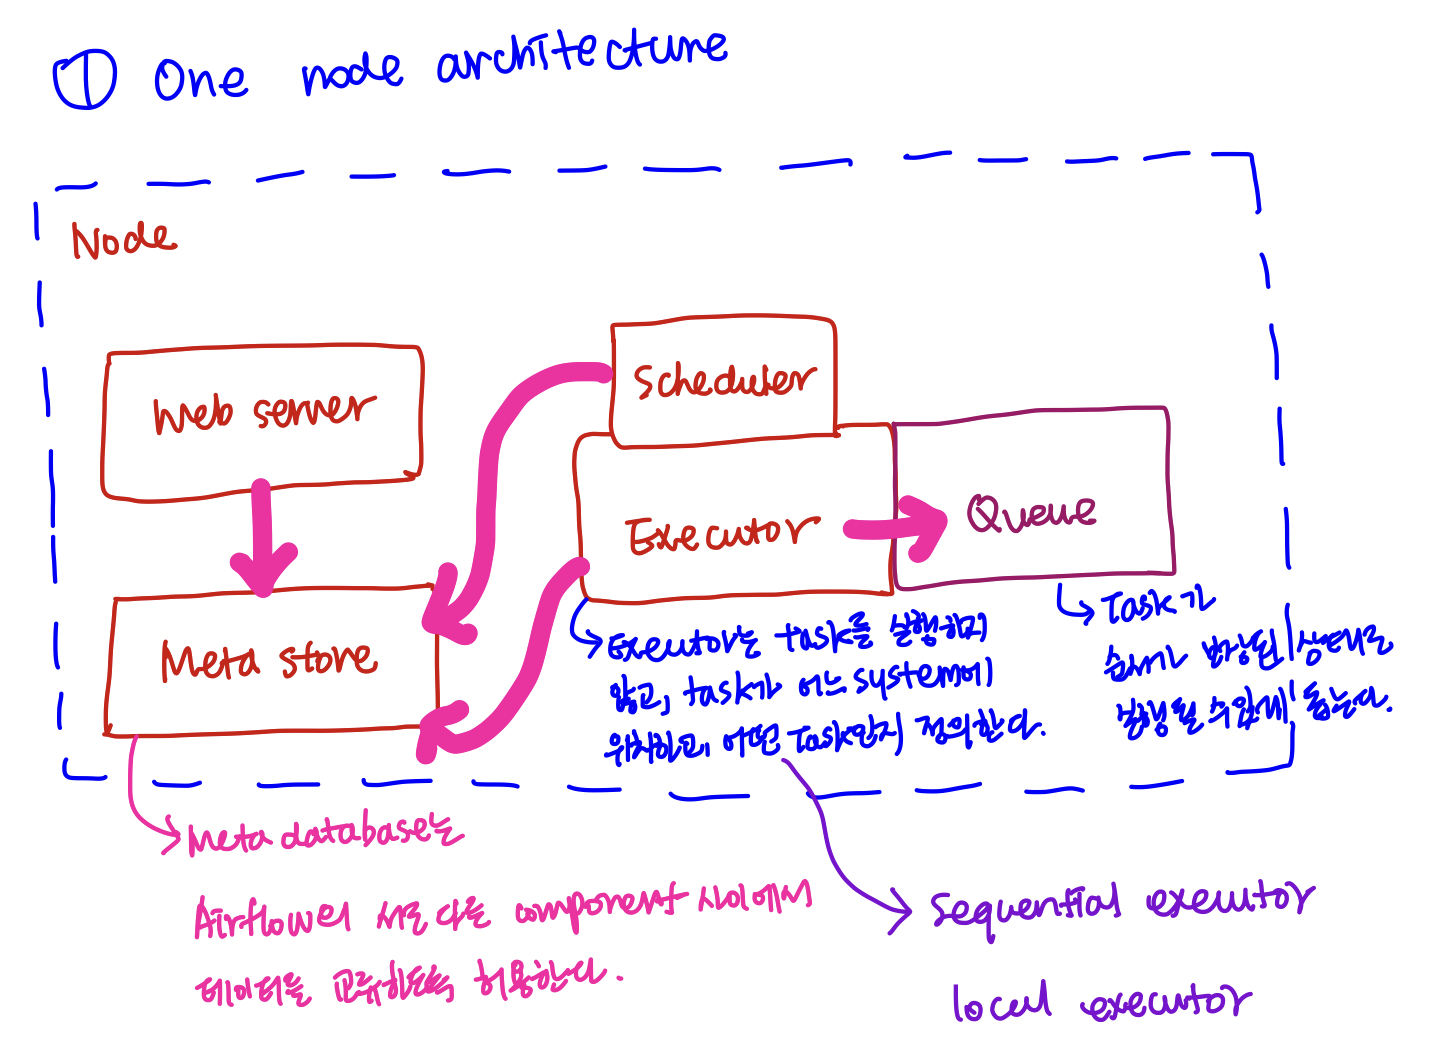 ① One node architecture
Node
Web server
Scheduler
Executor
Queue
Meta store
Executor는 task를 실행하지
않고, task가 어느 system에
위치하고, 어떤 Task인지 정의한다.
Task가
순서가 방향된 상태로
실행될 수 있게 돕는다.
Meta database는
Airflow의 서로 다른 component 사이에서
데이터를 교류하도록 허용한다.
Sequential executor
local executor